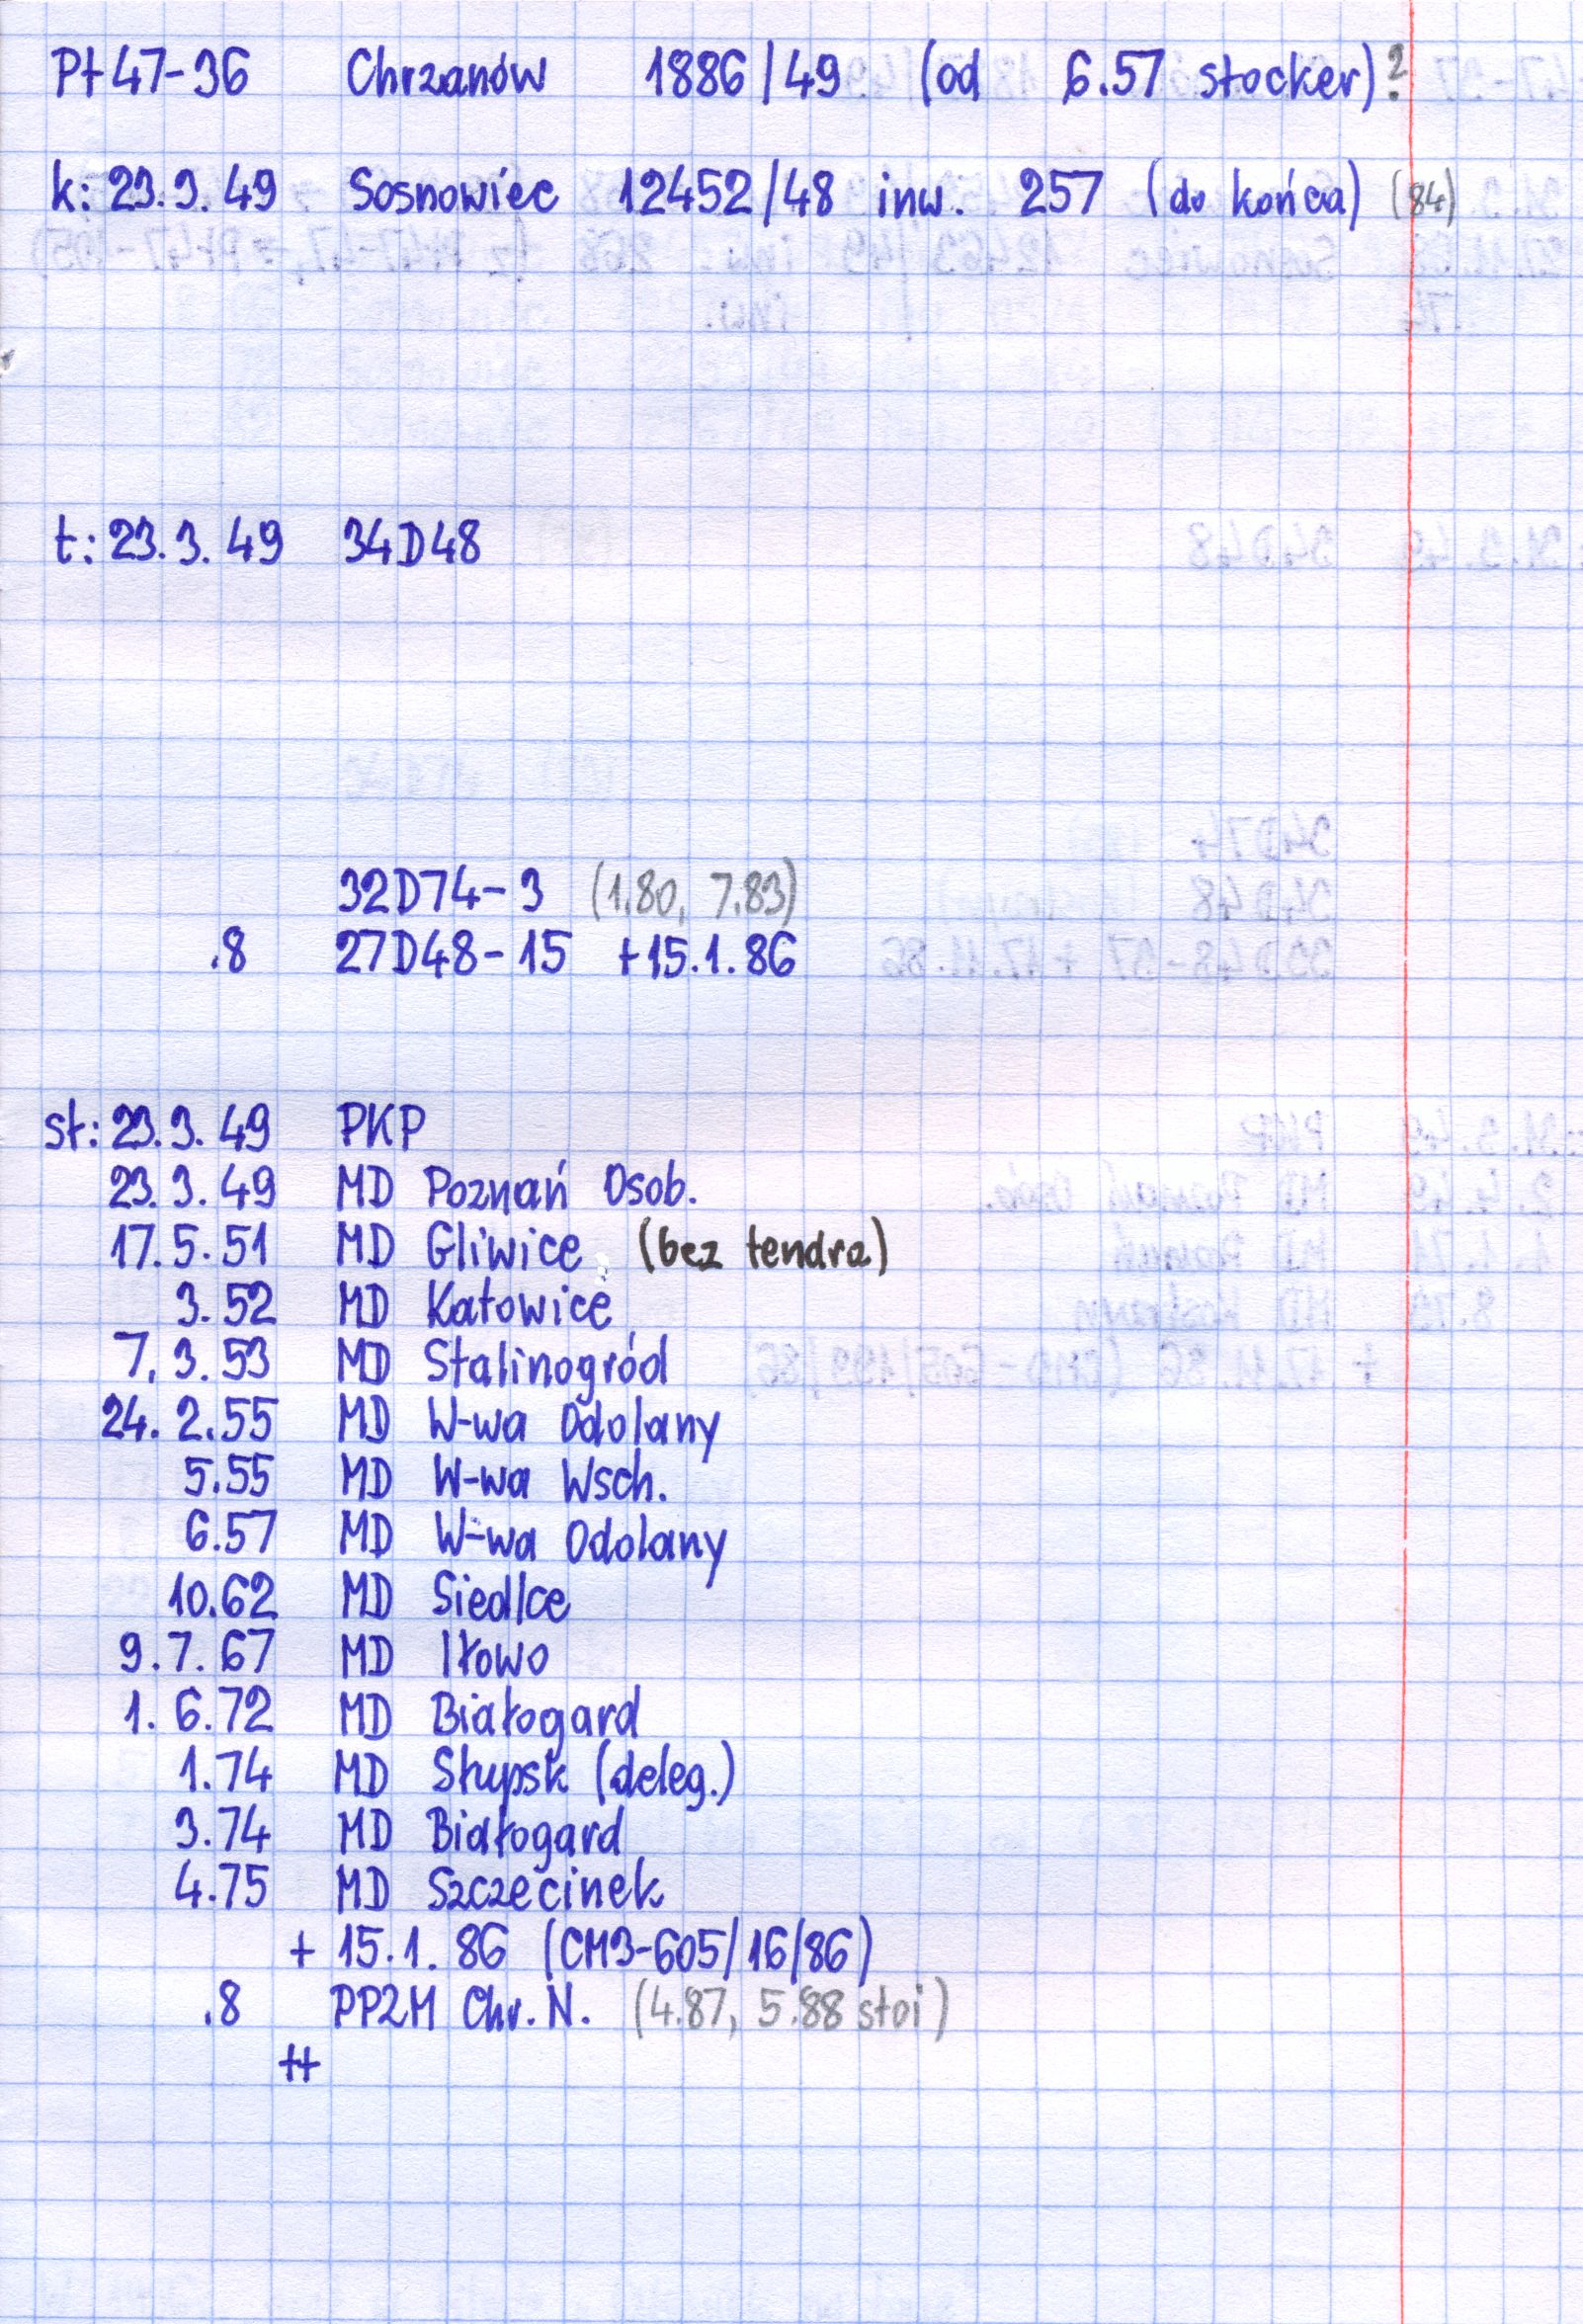 Pt47-36 Chrzanów 1886/49 (od 6.57 stocker)?
k: 23.3.49 Sosnowiec 12452/48 inw. 257 (do końca) (84)
t: 23.3.49 34D48
32D74-3 (1.80, 7.83)
.8 27D48-15 +15.1.86
st: 23.3.49 PKP
23.3.49 MD Poznań Osob.
17.5.51 MD Gliwice (bez tendra)
3.52 MD Katowice
7.3.53 MD Stalinogród
24.2.55 MD W-wa Odolany
5.55 MD W-wa Wsch.
6.57 MD W-wa Odolany
10.62 MD Siedlce
9.7.67 MD Iłowo
1.6.72 MD Białogard
1.74 MD Słupsk (deleg.)
3.74 MD Białogard
4.75 MD Szczecinek
+ 15.1.86 (CM3-605/16/86)
.8 PP2M Chr. N. (4.87, 5.88 stoi)
++